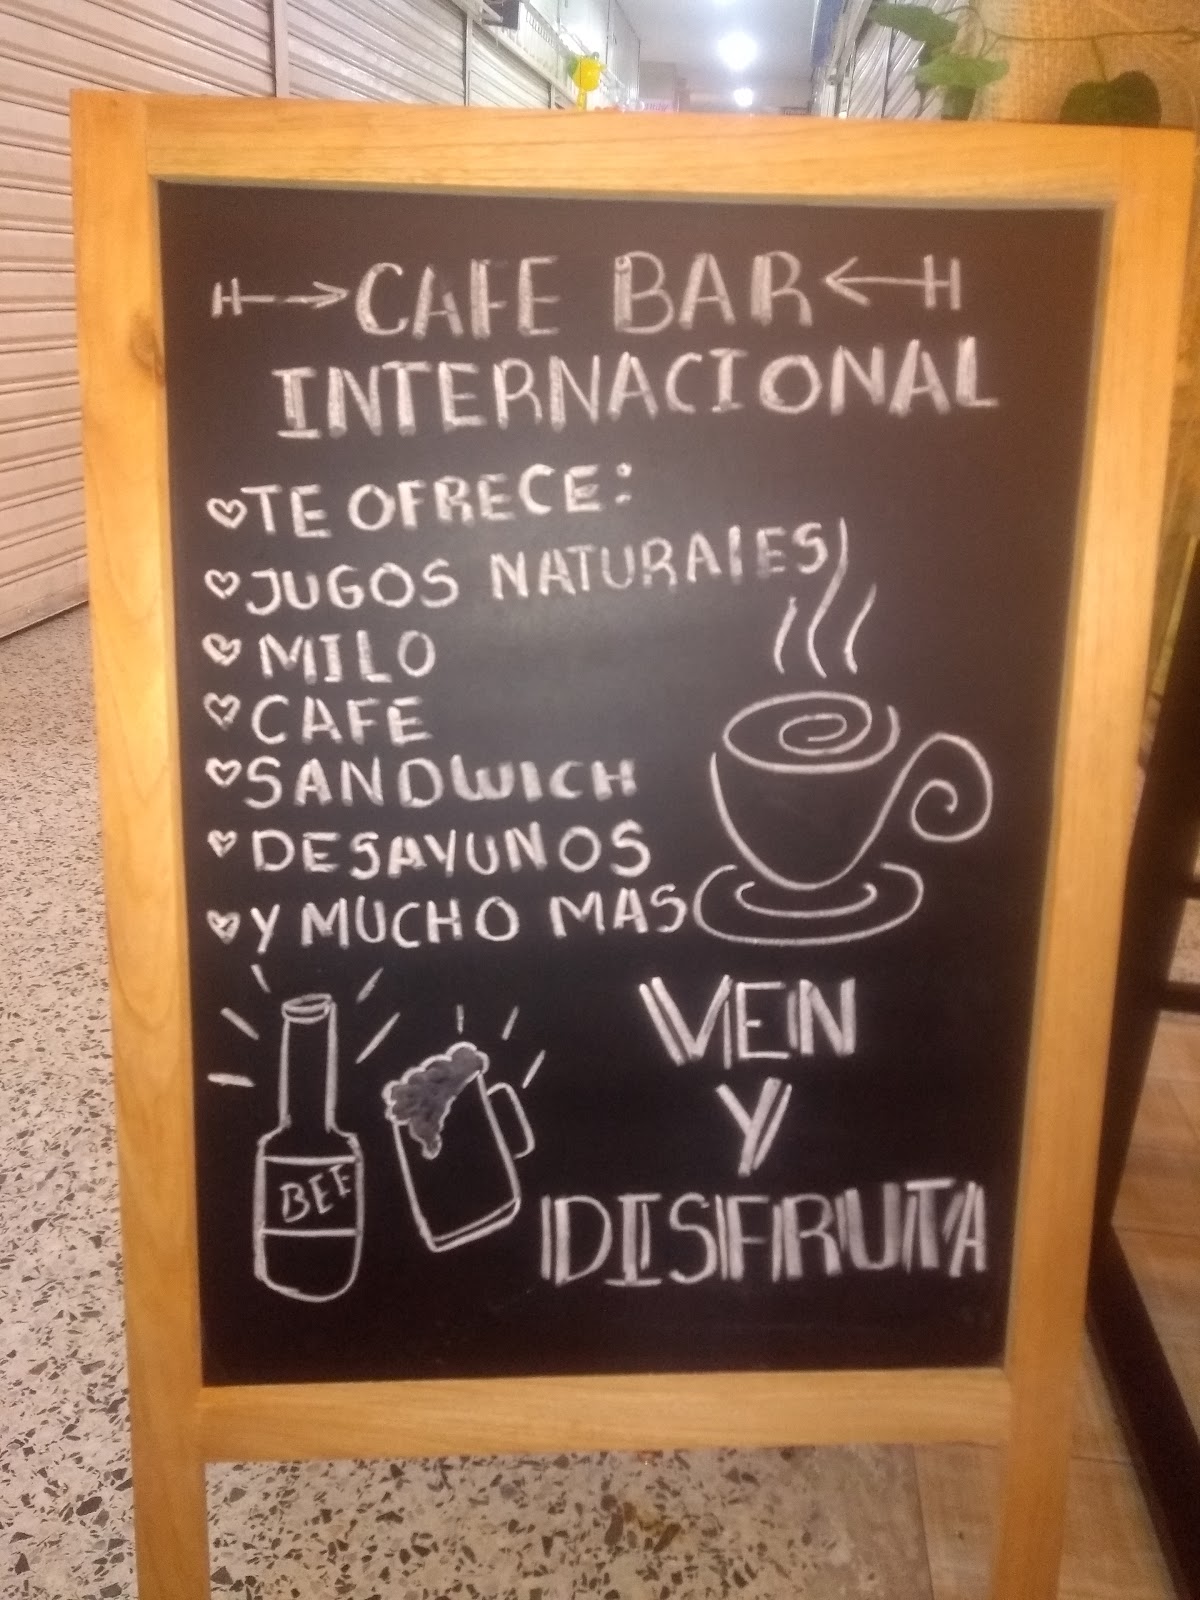 CAFE BAR
INTERNACIONAL
TE OFRECE:
JUGOS NATURAlES
MILO
CAFE
SANDWICH
DESAYUNOS
Y MUCHO MAS
VEN
Y
DISFRUTA
BEE